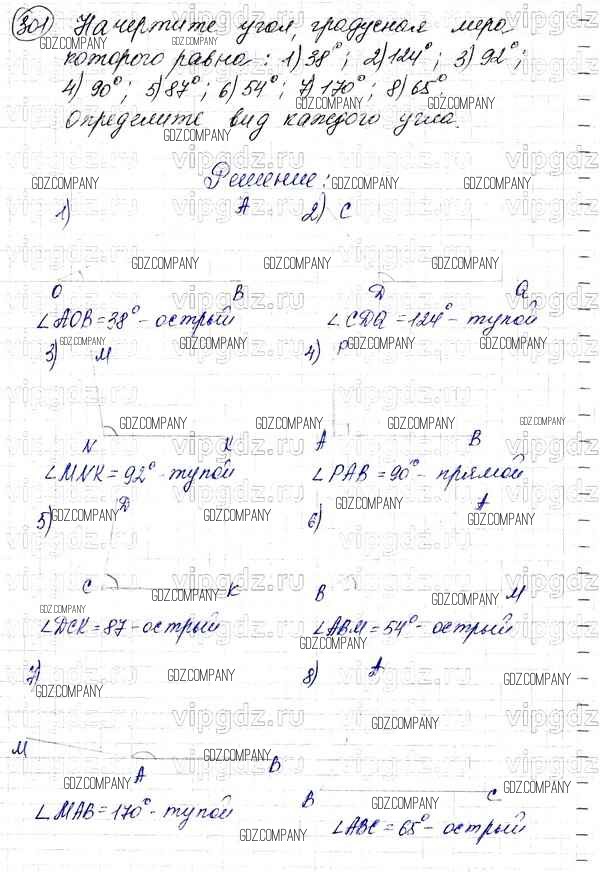 301 Начертите угол, градусная мера
которого равна: 1) 38°; 2) 124°; 3) 92°;
4) 90°; 5) 87°; 6) 54°; 7) 170°; 8) 65°.
Определите вид каждого угла.
Решение:
1) A 2) C
O B D Q
∠AOB = 38° - острый ∠CDQ = 124° - тупой
3) M 4) P
N K A B
∠MNK = 92° - тупой ∠PAB = 90° - прямой
5) D 6) A
C K B M
∠DCK = 87 - острый ∠ABM = 54° - острый
7) 8) A
M B
A B C
∠MAB = 170° - тупой ∠ABC = 65° - острый
GDZ.COMPANY
vipgdz.ru